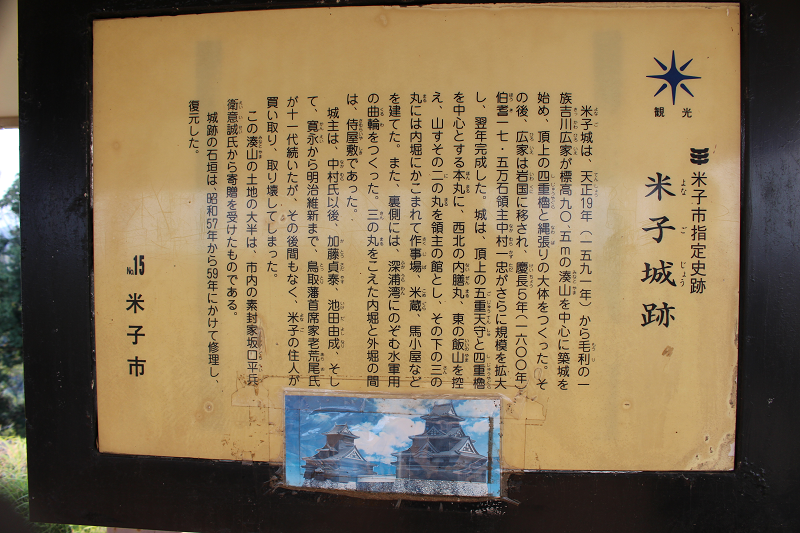 観光
米子市指定史跡
米子城跡
よなごじょう
米子城は、天正19年（一五九一年）から毛利の一
族吉川広家が標高九〇．五mの湊山を中心に築城を
始め、頂上の四重櫓と縄張りの大体をつくった。そ
の後、広家は岩国に移され、慶長5年（一六〇〇年）
伯耆一七・五万石領主中村一忠がさらに規模を拡大
し、翌年完成した。城は、頂上の五重天守と四重櫓
を中心とする本丸に、西北の内膳丸、東の飯山を控
え、山すその二の丸を領主の館とし、その下の三の
丸には内堀にかこまれて作事場、米蔵、馬小屋など
を建てた。また、裏側には、深浦湾にのぞむ水軍用
の曲輪をつくった。三の丸をこえた内堀と外堀の間
は、侍屋敷であった。
城主は、中村氏以後、加藤貞泰、池田由成、そし
て、寛永から明治維新まで、鳥取藩首席家老荒尾氏
が十一代続いたが、その後間もなく、米子の住人が
買い取り、取り壊してしまった。
この湊山の土地の大半は、市内の素封家坂口平兵
衛意誠氏から寄贈を受けたものである。
城跡の石垣は、昭和57年から59年にかけて修理し、
復元した。
No.15 米子市